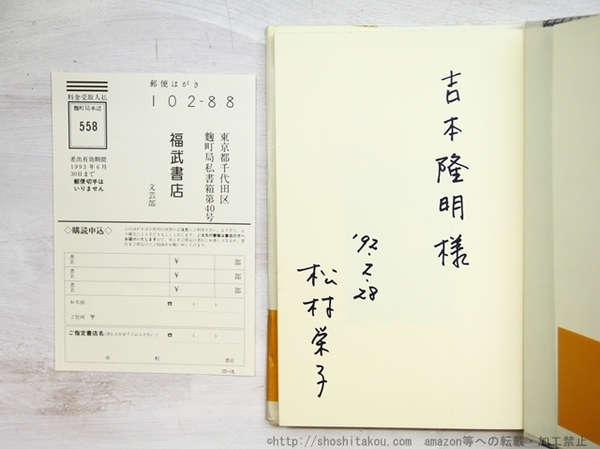 郵便はがき
102-88
料金受取人払
麹町局承認
558
差出有効期間
1993年6月
30日まで
郵便切手は
いりません
東京都千代田区
麹町局私書箱第40号
福武書店
文芸部
◇購読申込◇
書名 ¥ 部
書名 ¥ 部
書名 ¥ 部
お名前 ☎ ( )
ご住所 〒
ご指定書店名 ☎ ( )
吉本隆明様
'92.2.28
松村栄子
©http://shoshitakou.com amazon等への転載・加工禁止